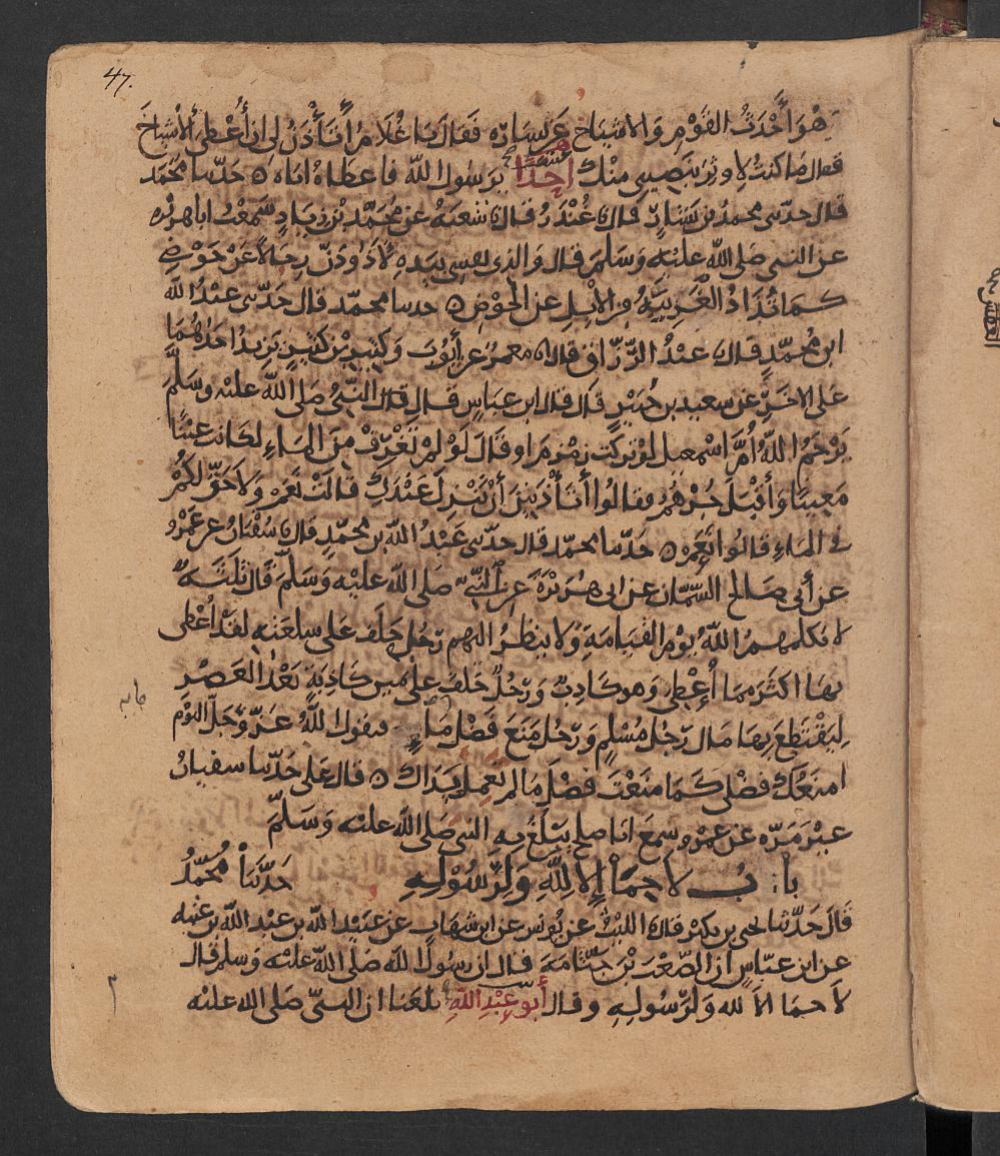 47.
هُوَ أَحْدَثُ القَوْمِ وَالاشياخ عَن يسَارِه فَقَالَ يَا غُلَامُ أَتَأْذَنُ لِى ان أُعْطِىَ الأشياخَ
فقال مَا كنتُ لِاوثِرَ بنَصِيبِى مِنْكَ أَحَدًا يرَسُولَ اللّه فاعطَاهُ ايَّاه ه حَدّثنا محمّد
قال حدّثنى محمدُ بن بَشَّارٍ قال نا غُنْدَرُ قال نا شعبَهُ عن مُحَمَّد بْن زِيَادٍ سَمعْتُ ابا هريْره
عن النبى صَلى اللّه عليْه وَسَلم قال وَالذِى نفسِى بيَدهِ لَاذُودَنَّ رجَالًا عَنْ حَوْضِى
كمَا تُذَادُ الْغَرِيبَةُ مِنَ الإبلِ عن الحَوْضِ ه حدثنا محمّد قال حَدّثنى عَبْدُ اللّه
ابن مُحَمّدٍ قال نا عَبْدُ الرَّزَّاق قال انا معمرٌ عن أَيُّوبَ وَكثيرِ بْن كثيرٍ يَزيدُ احَدُهُمَا
عَلى الاخَرِ عَن سعيد بن جُبَيْرٍ قال قال ابن عَبَّاسٍ قال قالَ النَّبىُّ صَلى اللّه عليْه وسَلَّم
يَرْحَمُ اللّهُ أُمَّ اسْمعيل لوْ تركَت زمْزمَ او قَالَ لَوْ لمْ تَغْرِفْ مِنَ المَاءِ لكانت عيْنًا
مَعِينًا وَأقْبَلَ جُرْهُمُ فقالوا أَتَأْذَنِينَ أَنْ نَنْزِلَ عَنْدَكِ قالَتْ نَعَمْ وَلَا حَقَّ لكُمْ
فى المَاءِ قالوا نعم ه حَدّثنا محمّد قال حدّثنى عَبْدُ اللّه بن محمّدٍ قال نا سُفْيَانُ عن عَمْرٍو
عن أبى صَالح السَّمّان عن ابى هُرَيْرَةَ عن النَّبىّ صَلى اللّه عليْه وَسَلَّم قال ثلثَةٌ
لا يُكلمهمُ اللّهُ يوْمَ القيَامَةِ وَلا ينظرُ اليهم رَجُل حَلَف على سلعَتِهِ لقَدْ أَعْطى
بهَا اكثَرَ مما أعطى وَهو كَاذِبٌ وَرَجُلٌ حَلفَ على يمينٍ كَاذِبَةٍ بَعْدَ العَصْرِ
لِيَقْتَطِعَ بهَا مَالَ رَجُلٍ مُسْلِمٍ وَرَجُلٌ مَنَعَ فَضْلَ مَاءٍ فيقولُ اللّهُ عَزَّ وَجَلَّ اليَوْم
امنَعُكَ فضْلى كَمَا منَعْتَ فضْلَ مَا لم تعملْ يَدَاكَ ه قال عَلى حَدّثنا سفيانُ
غيْرَ مَرّه عَن عمْرٍو سمعَ ابَا صَالح يَبْلُغُ بِهِ النبى صَلى اللّه عليْه وَسَلّم
بابُ لا حِمَا إِلا لِلّهِ وَلِرَسُولِهِ حَدّثَنَا مُحَمّدُ
قالَ حَدّثنا يحيى بن بكيْر قال نا الليْثُ عن يُونس عن ابن شهَابٍ عن عبَيْد اللّه بن عبْد اللّه بن عتبه
عن ابن عبّاسٍ ان الصّعْبَ بْنَ جَثّامَةَ قال ان رسُولَ اللّه صَلى اللّه عليْه وَسَلم قال
لَا حِمَا الا لله وَلِرَسُولِهِ وقال أبو عَبْدِ اللَّه بلَغنَا ان النبىَّ صَلى اللّه عليْه